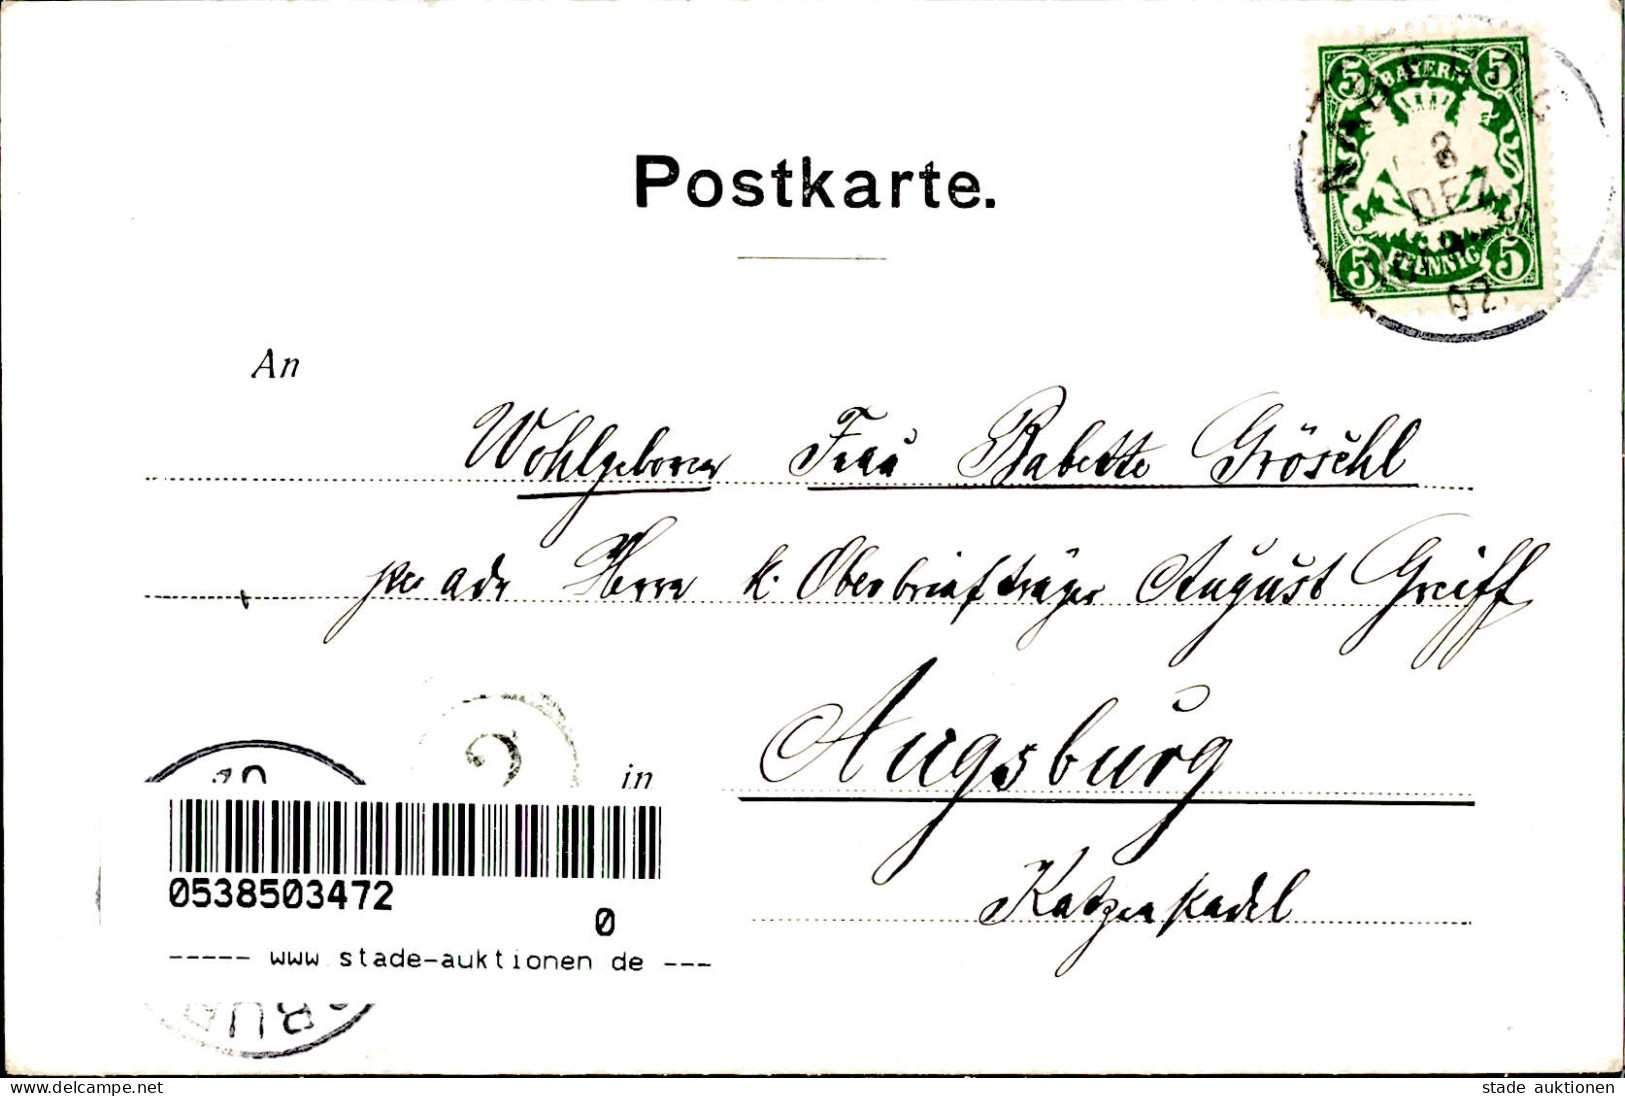 Postkarte.
5 BAYERN 5
3
DEZ
02
5 PFENNIG 5
An
Wohlgeboren Frau Babette Gröschl
per adr Herrn k. Oberbriefträger August Greiff
in Augsburg
0538503472
0
----- www.stade-auktionen.de ---
akpool.de/marktplatz
stade auktionen